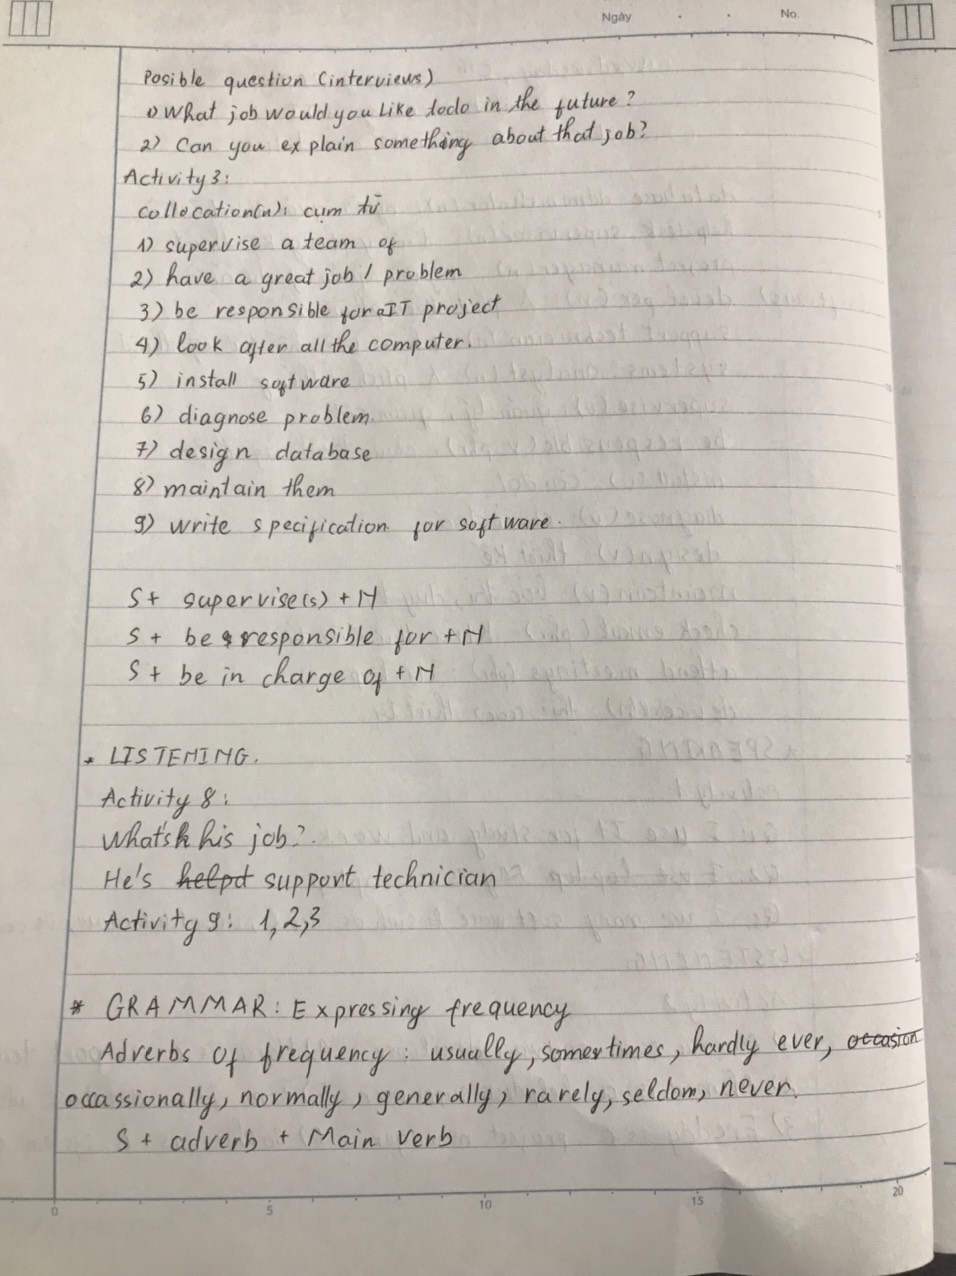 Ngày . . No.
Posible question (interviews)
1) What job would you like todo in the future?
2) Can you explain something about that job?
Activity 3:
collocation(n): cụm từ
1) supervise a team of
2) have a great job / problem
3) be responsible for a IT project
4) look after all the computer.
5) install software
6) diagnose problem.
7) design database
8) maintain them
9) write specification for software.
S + supervise(s) + N
S + be responsible for + N
S + be in charge of + N
* LISTENING.
Activity 8:
What's his job?
He's helpd support technician
Activity 9: 1, 2, 3
* GRAMMAR: Expressing frequency
Adverbs of frequency: usually, somertimes, hardly ever, occasion
occassionally, normally, generally, rarely, seldom, never.
S + adverb + Main verb
0 5 10 15 20